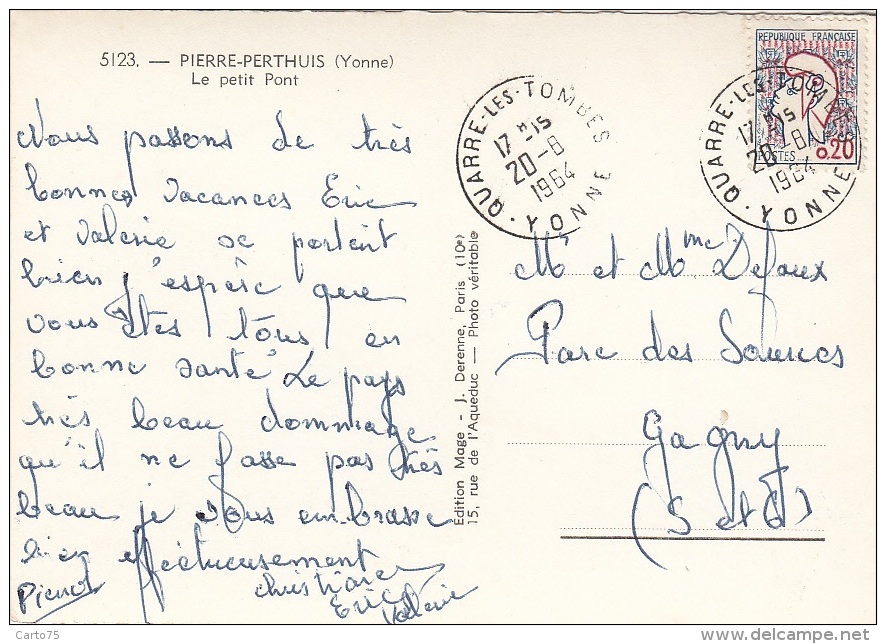 5123. — PIERRE-PERTHUIS (Yonne)
Le petit Pont
Nous passons de très
bonnes vacances Eric
et Valerie se portent
bien j'espère que
vous êtes tous en
bonne santé Le pays
très beau dommage
qu'il ne fasse pas très
beau je vous embrasse
bien affectueusement
Pierrot
Christiane
Eric
Valerie
Édition Mage - J. Derenne, Paris (10e)
15, rue de l'Aqueduc — Photo véritable
QUARRE-LES-TOMBES
17 H 15
20-8
1964
YONNE
REPUBLIQUE FRANÇAISE
POSTES
0,20
QUARRE-LES-TOMBES
17 H 15
20-8
1964
YONNE
Mr et Mme Defoux
Parc des
Gagny
(S et O)
Carto75
delcampe.net